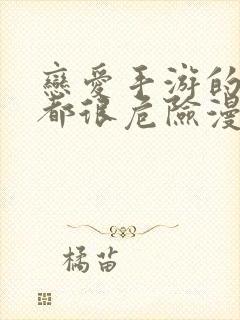 戀愛手游的
都很危險漫
橘苗